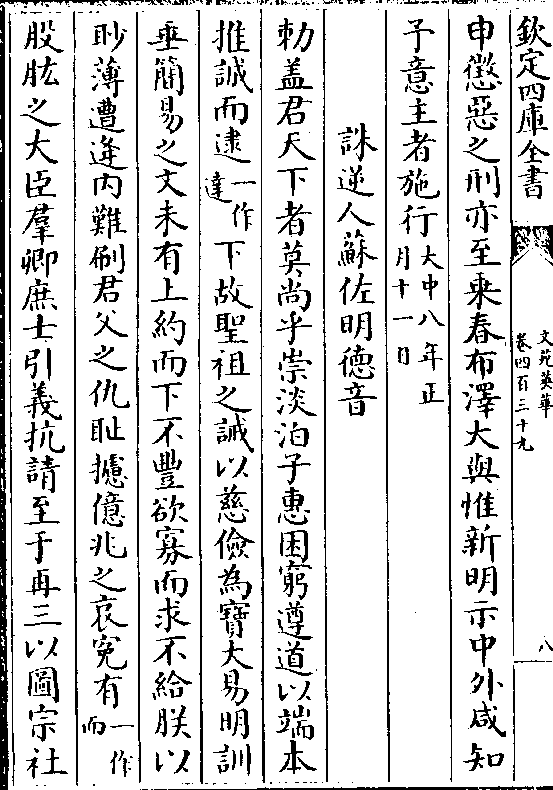 欽定四庫全書
文苑英華
卷四百三十九
八
申懲惡之刑亦至乘春布澤大與惟新明示中外咸知
予意主者施行大中八年正月十一日
誅逆人蘇佐明德音
勅蓋君天下者莫尚乎崇淡泊子惠困窮遵道以端本
推誠而逮一作達下故聖祖之誡以慈儉為寶大易明訓
垂簡易之文未有上約而下不豐欲寡而求不給朕以
眇薄遭逄内難刷君父之仇耻攄億兆之哀寃有一作而
股肱之大臣羣卿庶士引義抗請至于再三以圖宗社